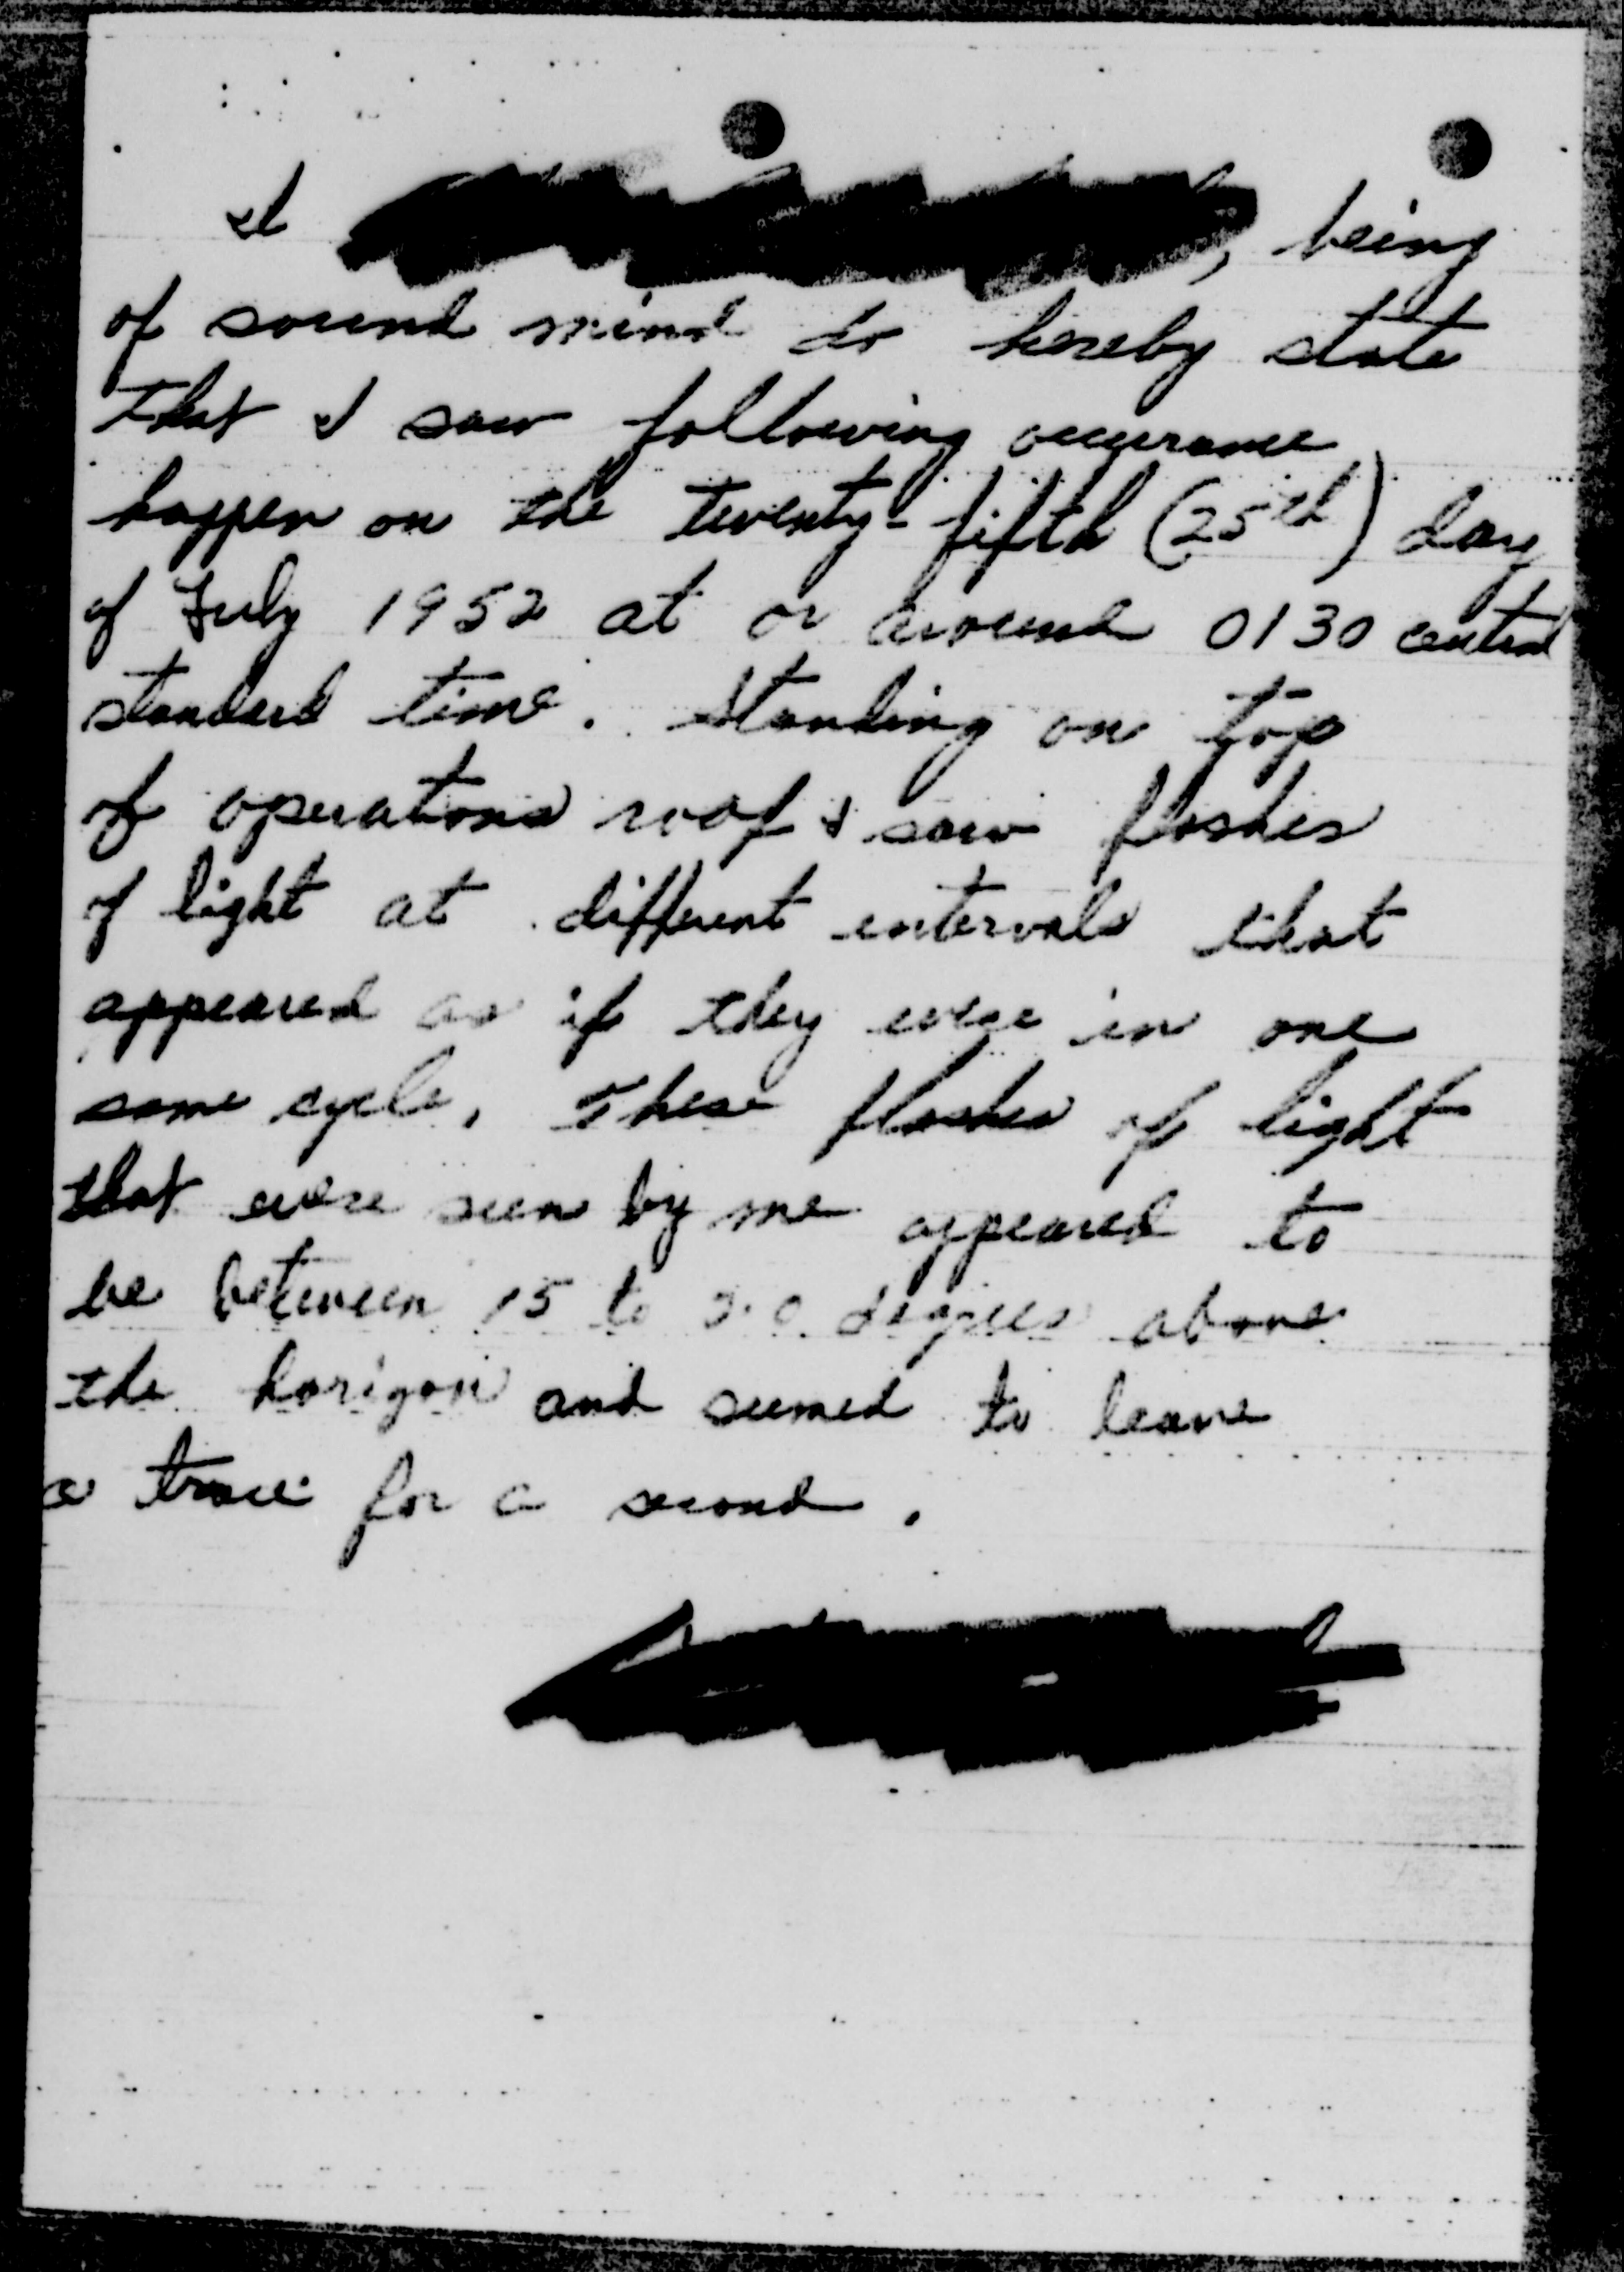 I , being
of sound mind do hereby state
that I saw following occurance
happen on the twenty-fifth (25th) day
of July 1952 at or around 0130 central
standard time. Standing on top
of operations roof I saw flashes
of light at different intervals that
appeared as if they were in one
same cycle. These flashes of light
that were seen by me appeared to
be between 15 to 20 degrees above
the horizon and seemed to leave
a trace for a second.